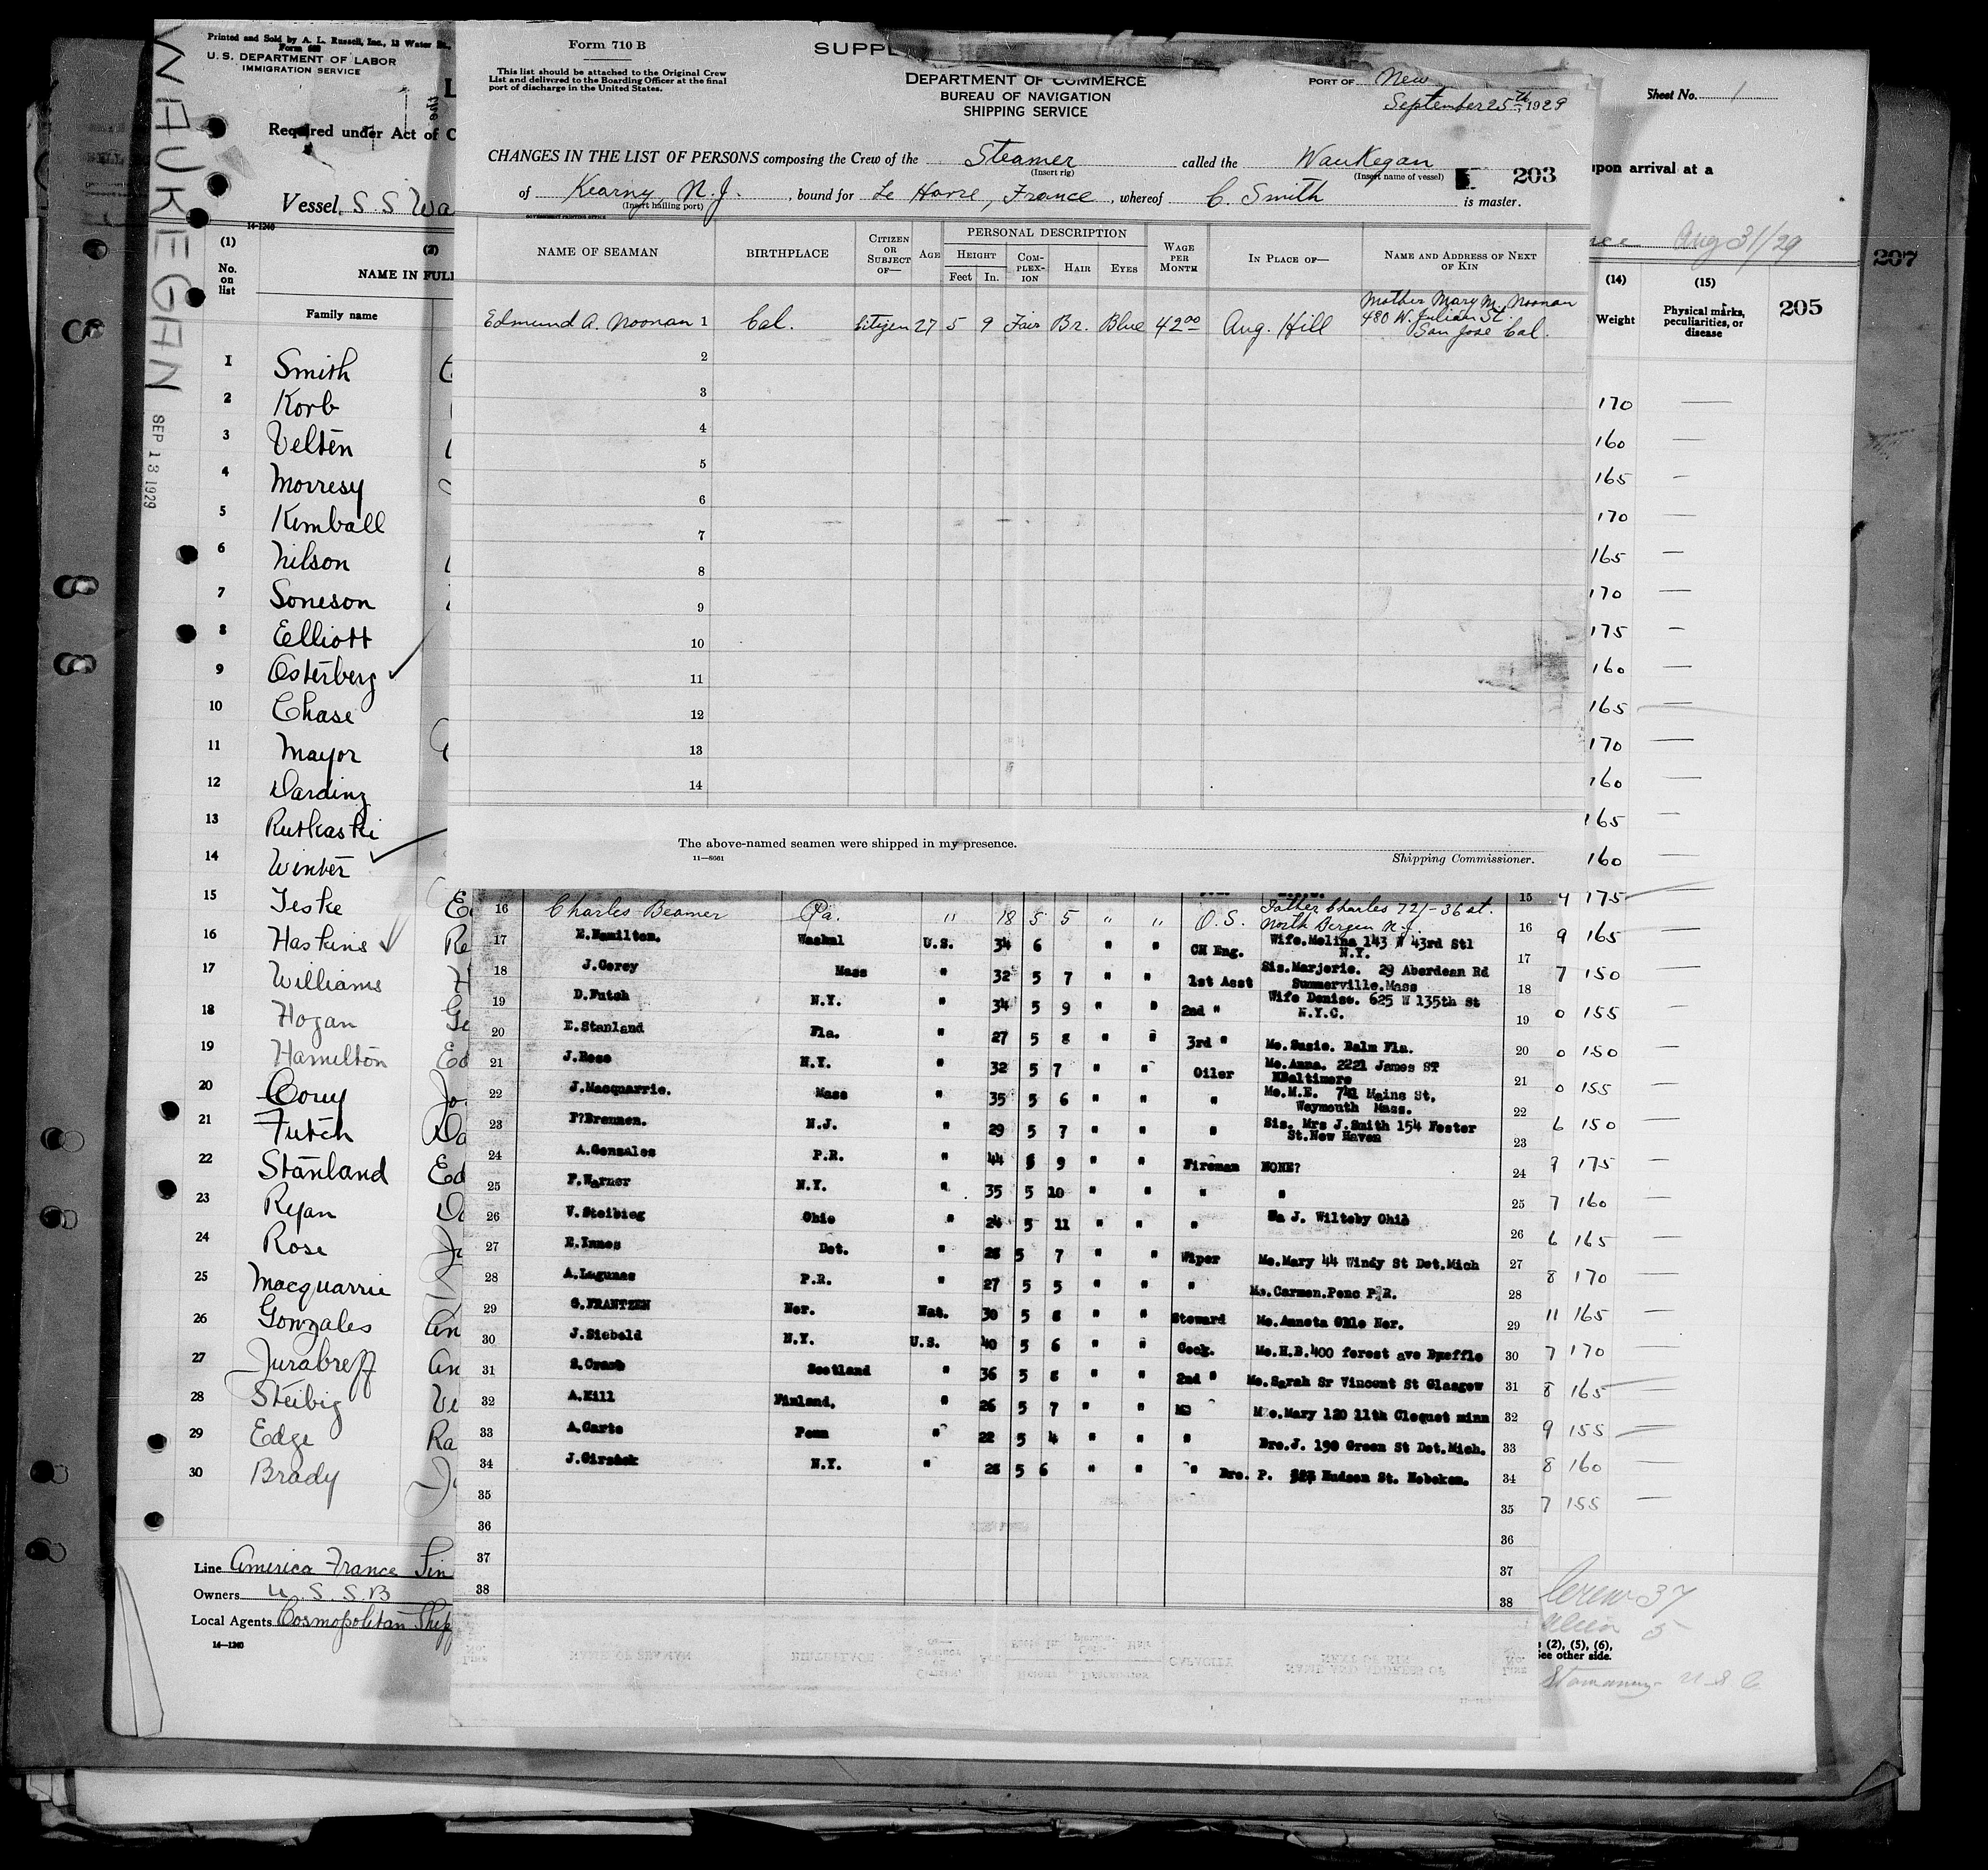 WAUKEGAN
SEP 13 1929
Printed and Sold by A. L. Russell, Inc., 13 Water
Form 689
U. S. DEPARTMENT OF LABOR
IMMIGRATION SERVICE
Required under Act of C
Vessel, S. S. Wa
14-1240
(1)
No. on list
(2)
NAME IN FULL
Family name
1 Smith
2 Korb
3 Velten
4 Morresy
5 Kimball
6 Nilson
7 Soneson
8 Elliott
9 Osterberg
10 Chase
11 Mayor
12 Darding
13 Rutkaski
14 Winter
15 Jeske
16 Haskins Re
17 Williams H
18 Hogan Ge
19 Hamilton Ed
20 Corey Jo
21 Futch Da
22 Stanland Ed
23 Ryan
24 Rose
25 Macquarrie
26 Gonzales An
27 Jurabreff An
28 Steibig Vi
29 Edge Ra
30 Brady
Line America France Lin
Owners U. S. S. B
Local Agents Cosmopolitan Ship
14-1240
Form 710 B
SUPPL
This list should be attached to the Original Crew
List and delivered to the Boarding Officer at the final
port of discharge in the United States.
DEPARTMENT OF COMMERCE
BUREAU OF NAVIGATION
SHIPPING SERVICE
PORT OF New
September 25th, 1929
CHANGES IN THE LIST OF PERSONS composing the Crew of the Steamer called the Waukegan
(Insert rig) (Insert name of vessel)
203
of Kearny, N. J., bound for Le Havre, France, whereof C. Smith is master.
(Insert hailing port)
GOVERNMENT PRINTING OFFICE
NAME OF SEAMAN BIRTHPLACE CITIZEN OR SUBJECT OF— AGE PERSONAL DESCRIPTION HEIGHT Feet In. COMPLEXION HAIR EYES WAGE PER MONTH IN PLACE OF— NAME AND ADDRESS OF NEXT OF KIN
Edmund A. Noonan 1 Cal. Citizen 27 5 9 Fair Br. Blue 42 00 Aug. Hill Mother Mary M. Noonan
480 W. Julian St.
San Jose Cal.
2
3
4
5
6
7
8
9
10
11
12
13
14
The above-named seamen were shipped in my presence.
11—8661
Shipping Commissioner.
15
16 Charles Beamer Pa. " 18 5 5 " " O. S. Father Charles 721-36 st. North Bergen N. J. 16
17 E.Hamilton. U.S. 34 6 " " CH Eng. Wife.Melina 143 W 43rd Stl N.Y. 17
18 J.Corey Mass " 32 5 7 " " 1st Asst Sis.Marjorie. 29 Aberdean Rd Summerville.Mass 18
19 D.Futch N.Y. " 34 5 9 " " 2nd " Wife Denise. 625 W 135th St N.Y.C. 19
20 E.Stanland Fla. " 27 5 8 " " 3rd " Mo.Susie. Balm Fla. 20
21 J.Rose N.Y. " 32 5 7 " " Oiler Mo.Anna. 2221 James ST Baltimore 21
22 J.Macquarrie. Mass " 35 5 6 " " " Mo.M.E. 741 Maine St. Weymouth Mass. 22
23 F?Brennen. N.J. " 29 5 7 " " " Sis. Mrs J.Smith 154 Foster St.New Haven 23
24 A.Gonzales P.R. " 44 5 9 " " Fireman NONE? 24
25 F.Warner N.Y. " 35 5 10 " " " " 25
26 V.Steibieg Ohio " 24 5 11 " " " J. Wilteby Ohio 26
27 E.Innes Det. " 28 5 7 " " Wiper Mo.Mary 44 Windy St Det.Mich 27
28 A.Lagunas P.R. " 27 5 5 " " " Mo.Carmen.Penc P.R. 28
29 G.FRANTZEN Nor. Nat. 30 5 8 " " Steward Mo.Anneta Oslo Nor. 29
30 J.Siebold N.Y. U.S. 40 5 6 " " Cook. Mo.H.B.400 forest ave Bufflo 30
31 Scotland " 36 5 8 " " 2nd " Mo.Sarah Sr Vincent St Glasgow 31
32 A.Hill Finland. " 26 5 7 " " Mo.Mary 120 11th Cloquet minn 32
33 A.Carto Penn " 22 5 4 " " " Bro.J. 190 Green St Det.Mich. 33
34 J.Girsack N.Y. " 28 5 6 " " " Bro. P. Hudson St. Hoboken. 34
35 35
36 36
37 37
38 38
Sheet No. 1
upon arrival at a
Aug 31/29
207
(14) (15)
Weight Physical marks, peculiarities, or disease
205
170 —
160 —
165 —
170 —
165 —
170 —
175 —
160 —
165 —
170 —
160 —
165 —
160 —
4 175 —
9 165 —
7 150 —
0 155 —
0 150 —
0 155 —
6 150 —
9 175 —
7 160 —
6 165 —
8 170 —
11 165 —
7 170 —
8 165 —
9 155 —
8 160 —
7 155 —
Crew 37
Alien 5
(2), (5), (6),
See other side.